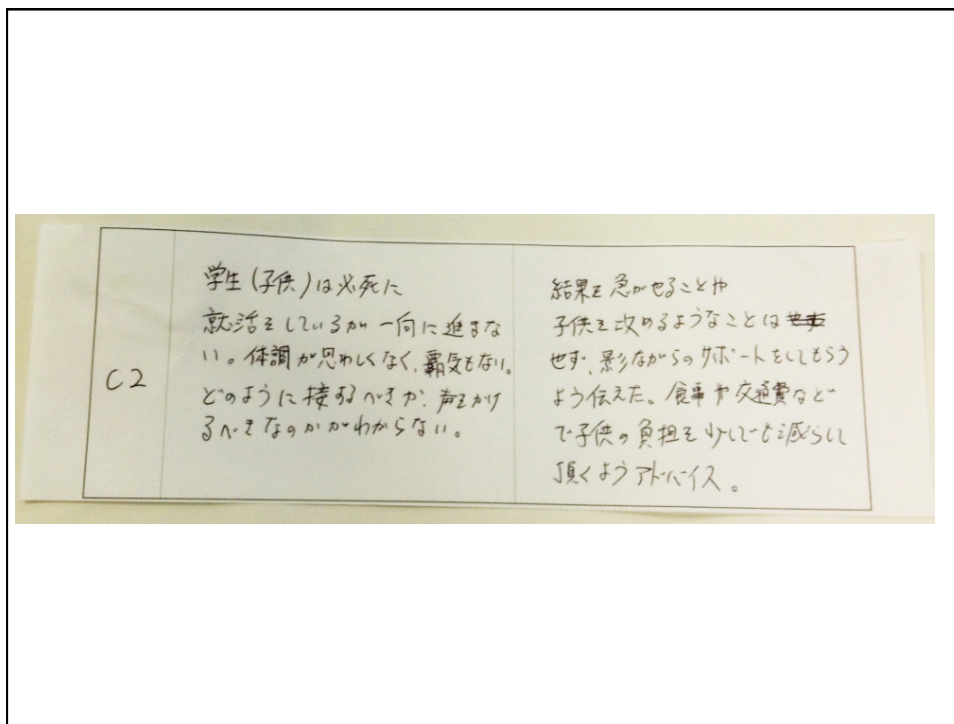 C2
学生(子供)は必死に
就活をしているが一向に進まな
い。体調が思わしくなく、覇気もない。
どのように接するべきか、声をかけ
るべきなのかがわからない。
結果を急がせることや
子供を改めるようなことは
せず、影ながらのサポートをしてもらう
よう伝えた。食事や交通費など
で子供の負担を少しでも減らして
頂くようアドバイス。